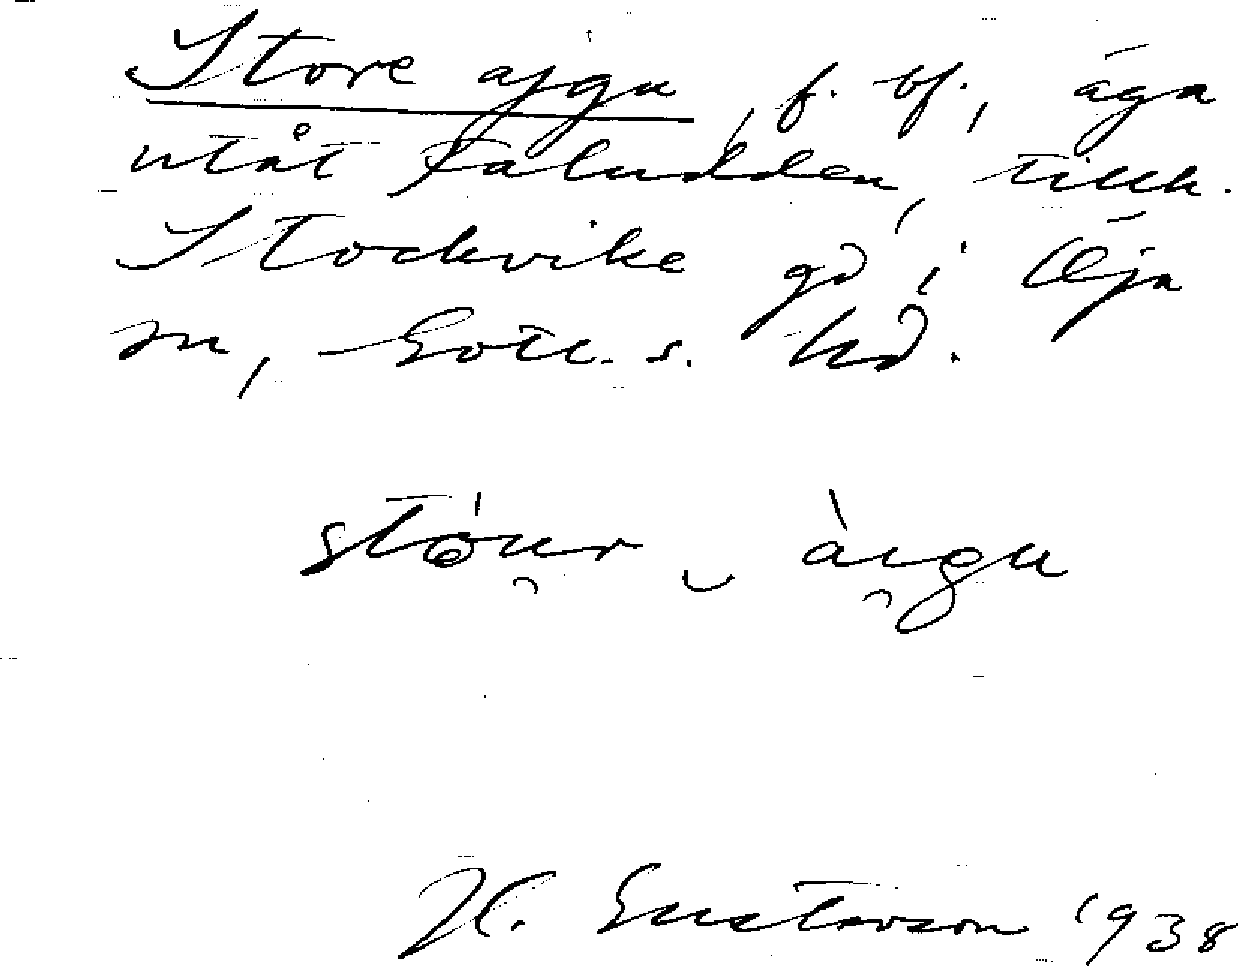 Store ajgu, f. bf., äga
utåt Faludden, tillh.
Stockvike gd i Öja
sn, Gotl. s. hd.
stǿu̯r ‿ ài̯gu
H. Gustavson 1938